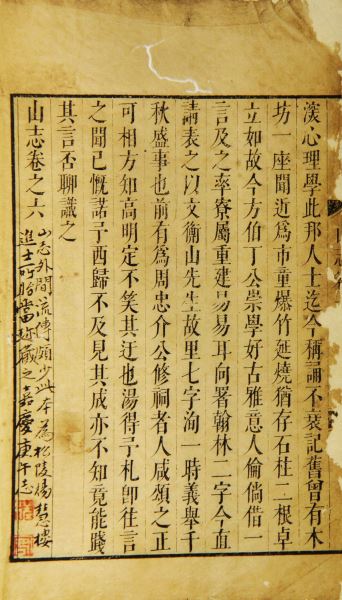 深心理學此邦人士迄今稱誦不衰記舊曾有木
坊一座聞近爲市童爆竹延燒猶存石柱二根卓
立如故今方伯丁公崇學好古雅意人倫倘借一
言及之率寮屬重建易易耳向署翰林二字今直
請表之以文衡山先生故里七字洵一時義舉千
秋盛事也前有爲周忠介公修祠者人咸頌之正
可相方知高明定不笑其迂也湯得予札卽往言
之聞已慨諾予西歸不及見其成亦不知竟能踐
其言否聊識之
山志卷之六
山志外間流傳頗少此本爲松陵楊慧樓
進士所貽當珍藏之嘉慶庚午志